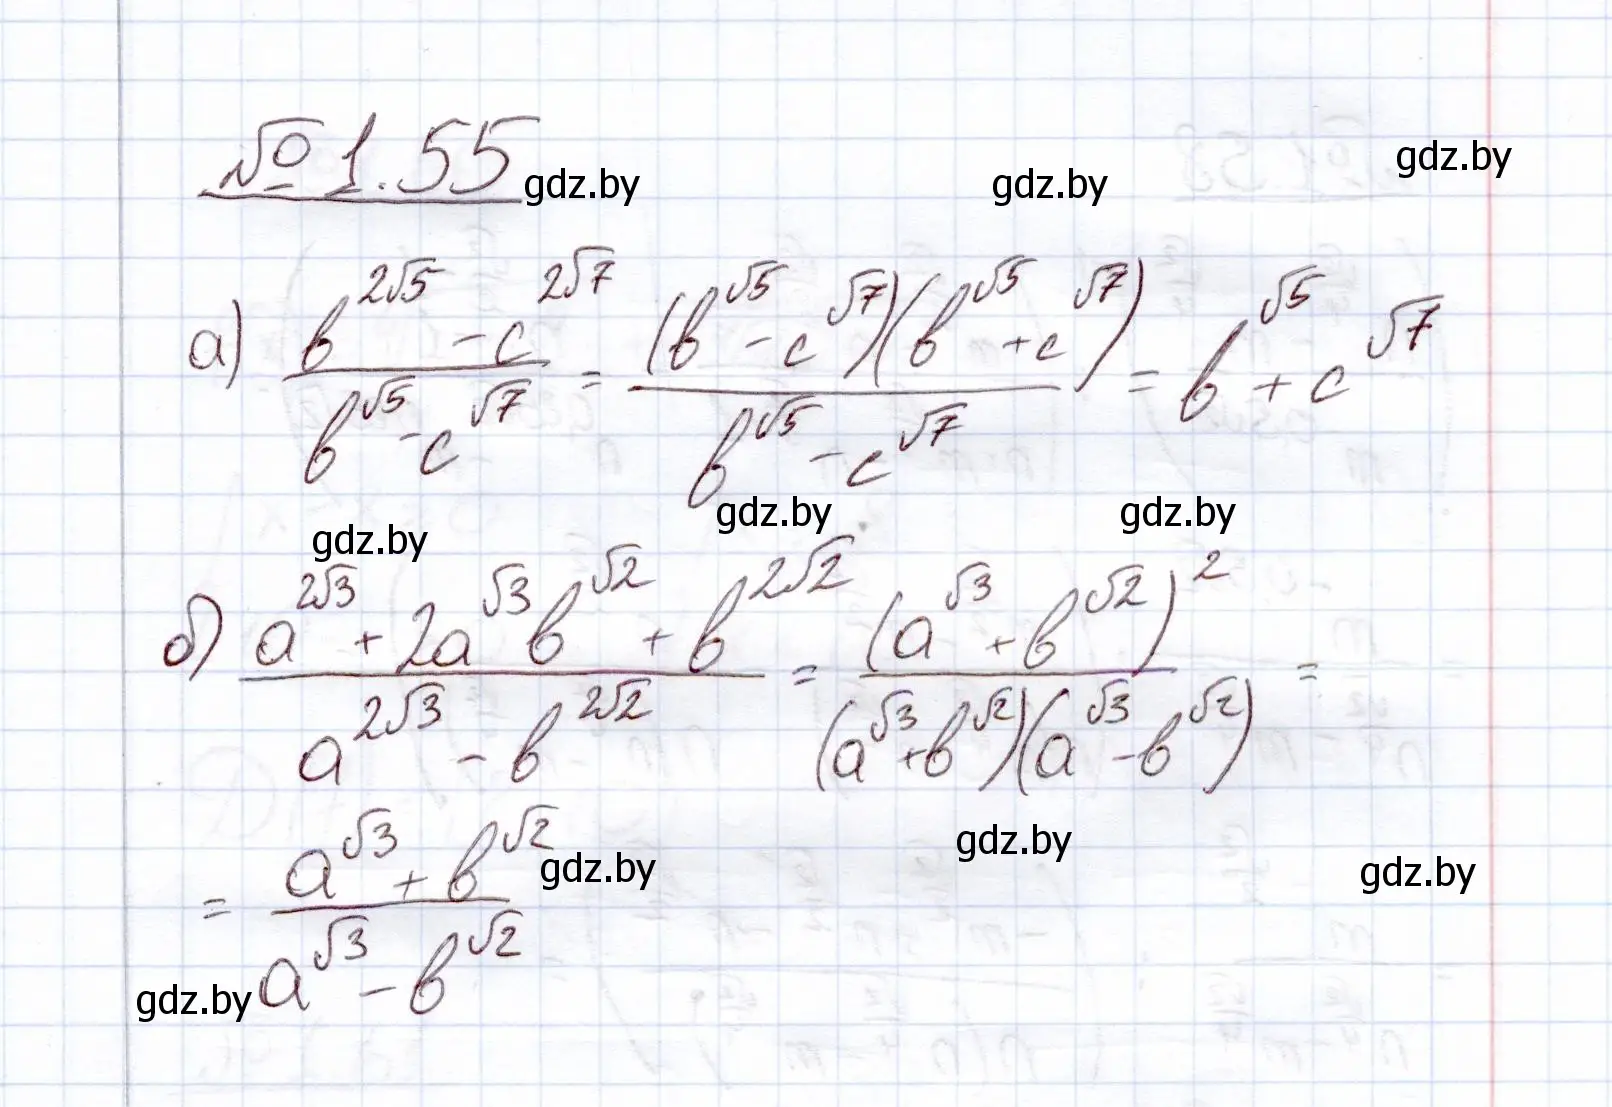 № 1.55
gdz.by gdz.by gdz.by
а) \frac{b^{2\sqrt{5}} - c^{2\sqrt{7}}}{b^{\sqrt{5}} - c^{\sqrt{7}}} = \frac{(b^{\sqrt{5}} - c^{\sqrt{7}})(b^{\sqrt{5}} + c^{\sqrt{7}})}{b^{\sqrt{5}} - c^{\sqrt{7}}} = b^{\sqrt{5}} + c^{\sqrt{7}}
gdz.by gdz.by gdz.by
б) \frac{a^{2\sqrt{3}} + 2a^{\sqrt{3}} b^{\sqrt{2}} + b^{2\sqrt{2}}}{a^{2\sqrt{3}} - b^{2\sqrt{2}}} = \frac{(a^{\sqrt{3}} + b^{\sqrt{2}})^2}{(a^{\sqrt{3}} + b^{\sqrt{2}})(a^{\sqrt{3}} - b^{\sqrt{2}})} =
= \frac{a^{\sqrt{3}} + b^{\sqrt{2}}}{a^{\sqrt{3}} - b^{\sqrt{2}}}
gdz.by gdz.by gdz.by
gdz.by